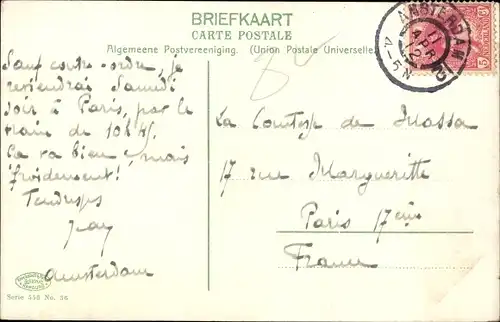 BRIEFKAART
CARTE POSTALE
Algemeene Postvereeniging. (Union Postale Universelle)
AMSTERDAM
11 APR 12
4-5 N
5
Sauf contre-ordre, je
reviendrai Samedi
soir à Paris, par le
train de 10h 45.
Ça va bien, mais
froidement!
Tendresses
Amsterdam
La Comtesse de Massa
17 rue Margueritte
Paris 17ème
France
Serie 555 No. 36